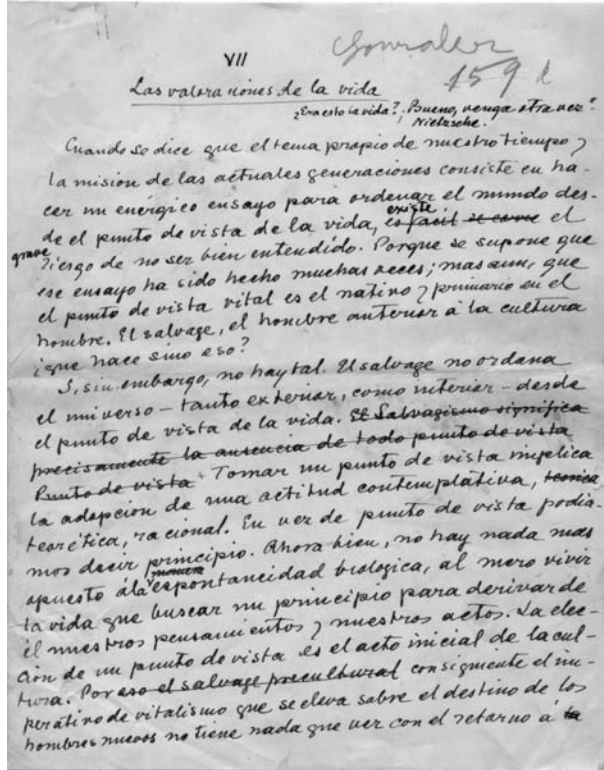 VII
Gonzalez
159
Las valoraciones de la vida
¿Era esto la vida? ¡Bueno, venga otra vez!
Nietzsche.
Cuando se dice que el tema propio de nuestro tiempo y
la misión de las actuales generaciones consiste en ha-
cer un enérgico ensayo para ordenar el mundo des-
de el punto de vista de la vida, existe es facil se corre el
grave riesgo de no ser bien entendido. Porque se supone que
ese ensayo ha sido hecho muchas veces; mas aun, que
el punto de vista vital es el nativo y primario en el
hombre. El salvage, el hombre anterior á la cultura
¿que hace sino eso?
Y, sin embargo, no hay tal. El salvage no ordena
el universo – tanto exterior, como interior – desde
el punto de vista de la vida. El Salvagismo significa
precisamente la ausencia de todo punto de vista
Punto de vista Tomar un punto de vista implica
la adopcion de una actitud contemplativa, teorica
teorética, racional. En vez de punto de vista podia-
mos decir principio. Ahora bien, no hay nada mas
opuesto á la espontaneidad biologica, al mero vivir
la vida que buscar un principio para derivar de
él nuestros pensamientos y nuestros actos. La elec-
ción de un punto de vista es el acto inicial de la cul-
tura. Por eso el salvage precultural consiguiente el im-
perativo de vitalismo que se eleva sobre el destino de los
hombres nuevos no tiene nada que ver con el retorno á la